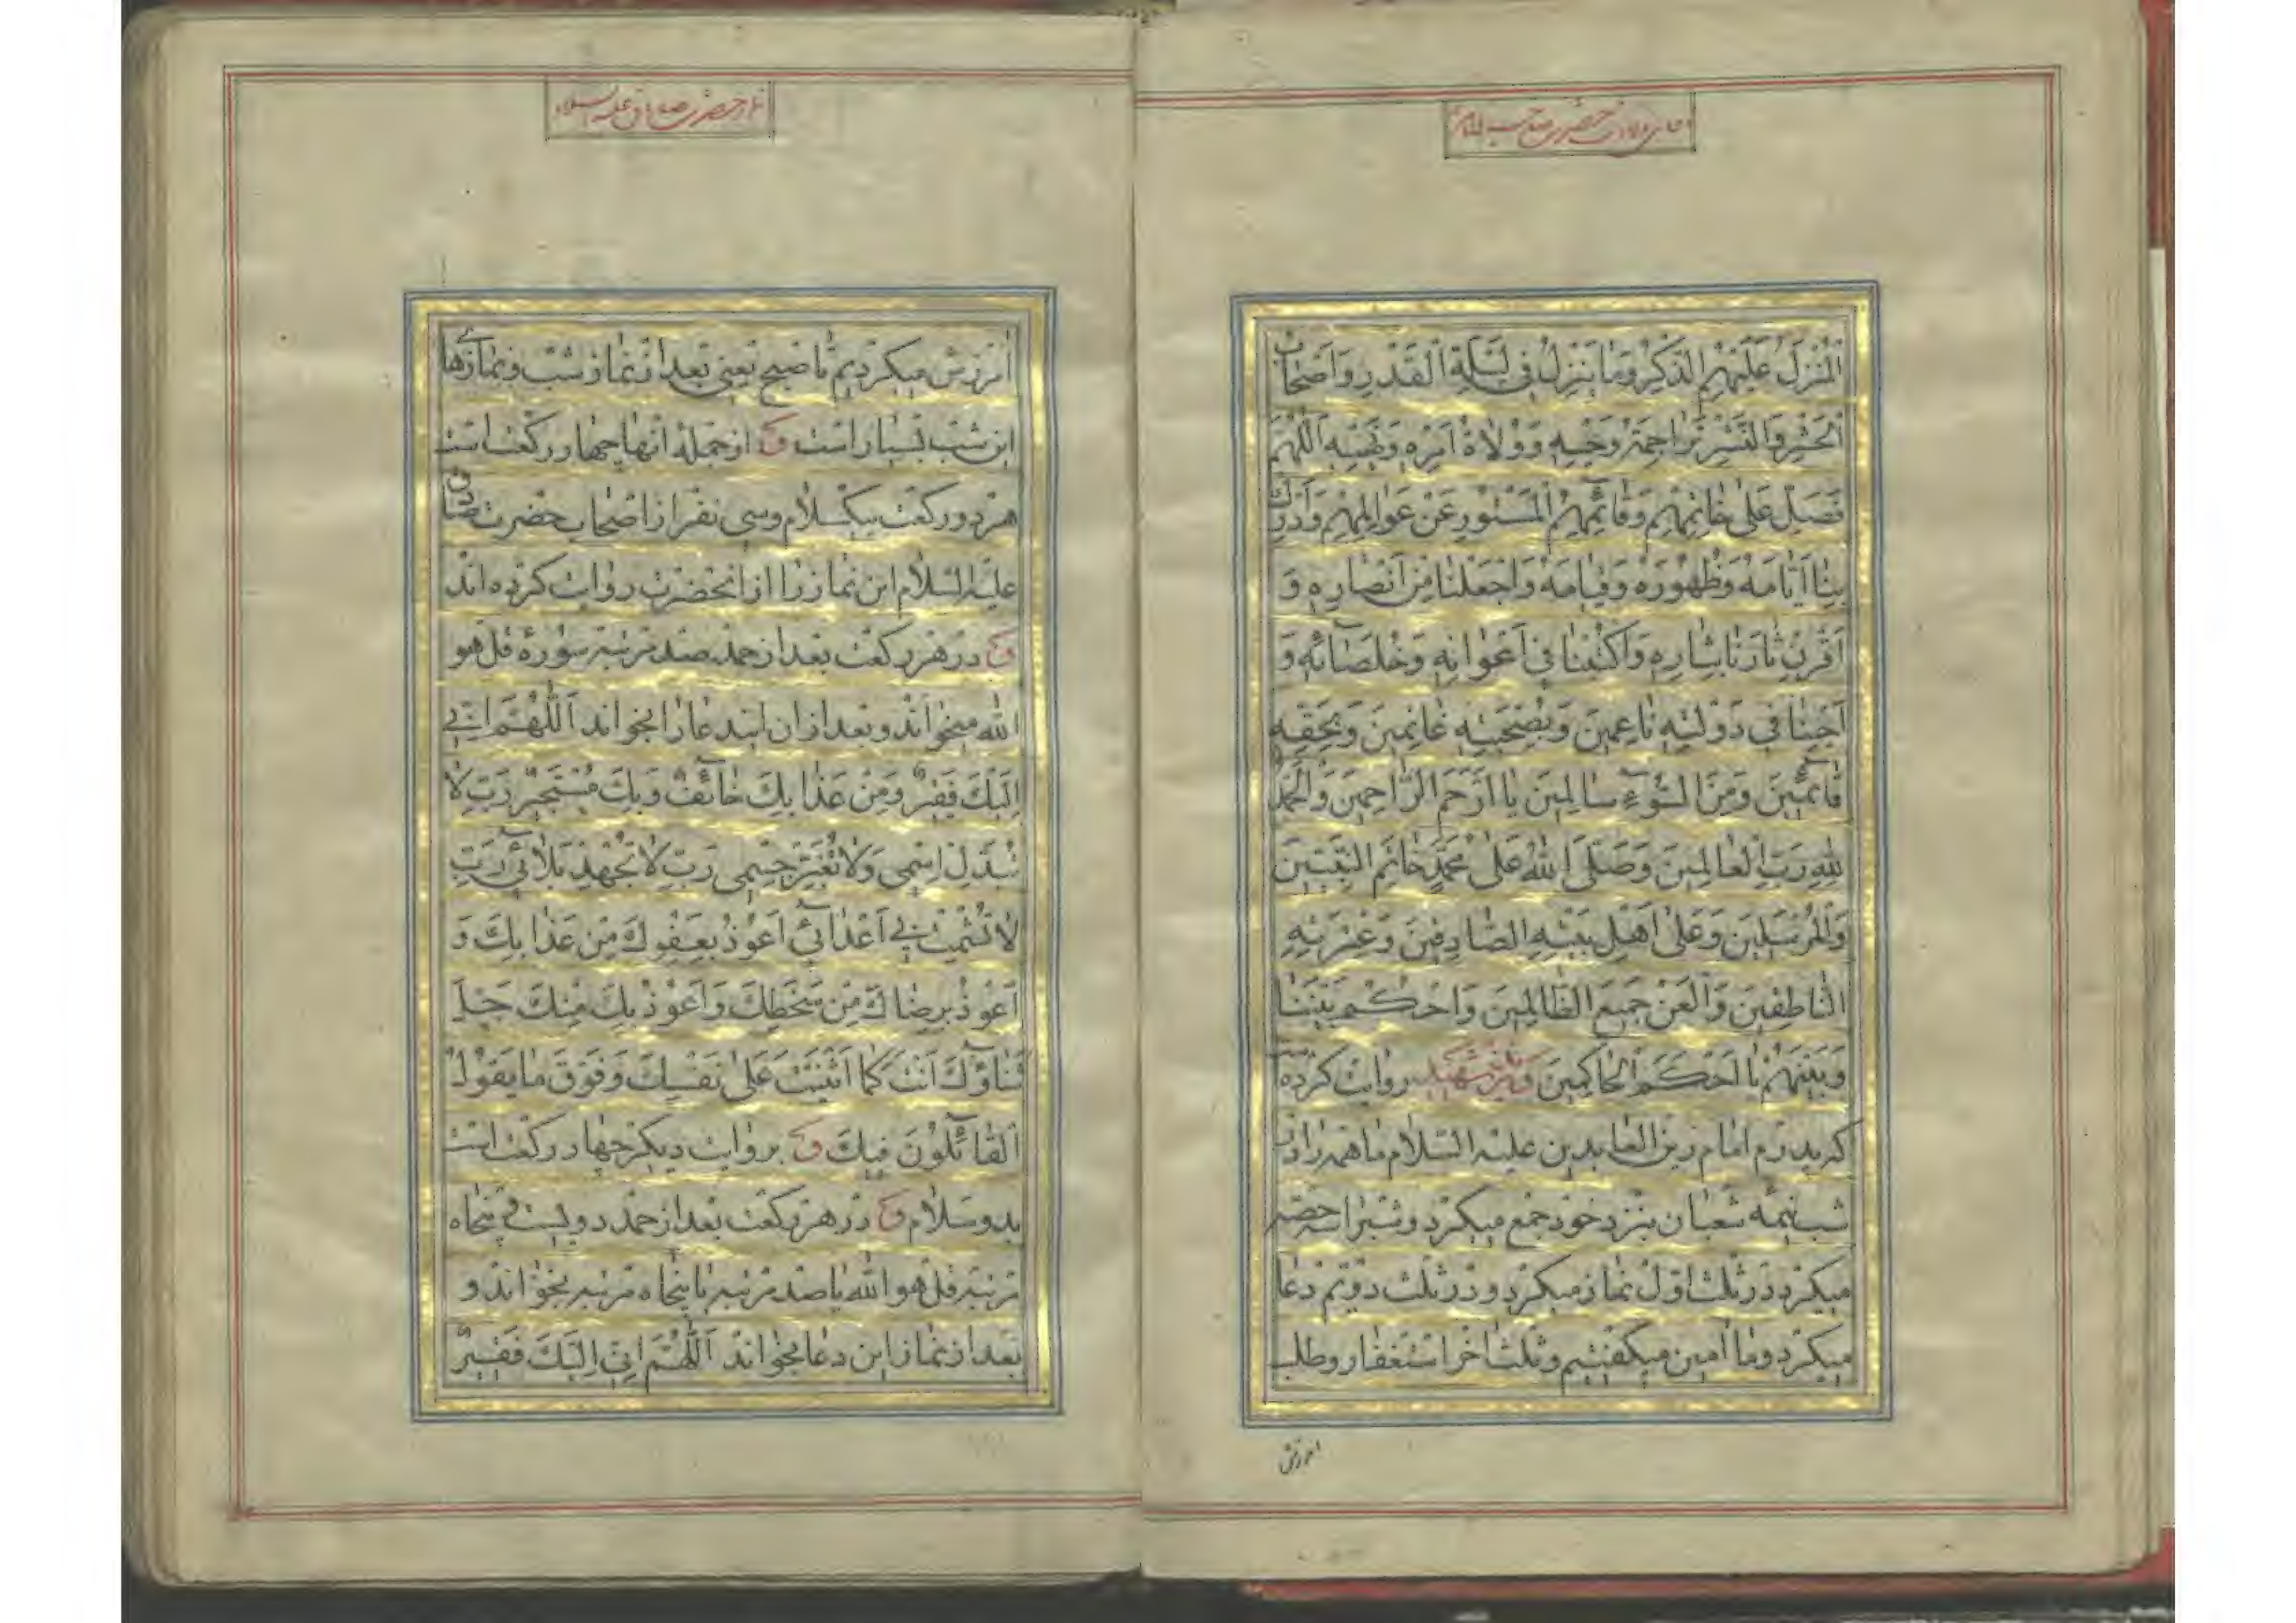 دعای ولادت حضرت صاحب الامر
الْمُنْزَلُ عَلَيْهِمُ الذِّكْرُ وَمَا يَنْزِلُ فِي لَيْلَةِ الْقَدْرِ وَاَصْحَابُ
الْحَشْرِ وَالنَّشْرِ تَرَاجِمَةُ وَحْيِهِ وَوُلَاةُ اَمْرِهِ وَنَهْيِهِ اَللّٰهُمَّ
فَصَلِّ عَلٰى خَاتِمِهِمْ وَقَائِمِهِمُ الْمَسْتُورِ عَنْ عَوَالِمِهِمْ وَاَدْرِكْ
بِنَا اَيَّامَهُ وَظُهُورَهُ وَقِيَامَهُ وَاجْعَلْنَا مِنْ اَنْصَارِهِ وَ
اَقْرِنْ ثَارَنَا بِثَارِهِ وَاكْتُبْنَا فِي اَعْوَانِهِ وَخُلَصَائِهِ وَ
اَحْيِنَا فِي دَوْلَتِهِ نَاعِمِينَ وَبِصُحْبَتِهِ غَانِمِينَ وَبِحَقِّهِ
قَائِمِينَ وَمِنَ السُّوءِ سَالِمِينَ يَا اَرْحَمَ الرَّاحِمِينَ وَالْحَمْدُ
لِلّٰهِ رَبِّ الْعَالَمِينَ وَصَلَّى اللّٰهُ عَلٰى مُحَمَّدٍ خَاتَمِ النَّبِيِّينَ
وَالْمُرْسَلِينَ وَعَلٰى اَهْلِ بَيْتِهِ الصَّادِقِينَ وَعِتْرَتِهِ
النَّاطِقِينَ وَالْعَنْ جَمِيعَ الظَّالِمِينَ وَاحْكُمْ بَيْنَنَا
وَبَيْنَهُمْ يَا اَحْكَمَ الْحَاكِمِينَ وزید شهید روایت کرده
که پدرم امام زین العابدین علیه السلام ما همه را در
شب نیمه شعبان بنزد خود جمع میکرد و شب را سه حصه
میکرد در ثلث اول نماز میکرد و در ثلث دویم دعا
میکرد و ما امین میکفتیم و ثلث اخر استغفار و طلب
امرزش
نماز حضرت صادق علیه السلام
امرزش میکردیم تا صبح یعنی بعد از نماز شب و نمازهای
این شب بسیار است و از جمله انها چهار رکعت است
هر دو رکعت بیکسلام و سی نفر از اصحاب حضرت صادق
علیه السلام این نماز را از انحضرت روایت کرده اند
و در هر رکعت بعد از حمد صد مرتبه سوره قل هو
الله میخواند و بعد از ان ایندعا را بخواند اَللّٰهُمَّ اِنِّي
اِلَيْكَ فَقِيرٌ وَمِنْ عَذَابِكَ خَائِفٌ وَبِكَ مُسْتَجِيرٌ رَبِّ لَا
تُبَدِّلْ اِسْمِي وَلَا تُغَيِّرْ جِسْمِي رَبِّ لَا تُجْهِدْ بَلَائِي رَبِّ
لَا تُشْمِتْ بِي اَعْدَائِي اَعُوذُ بِعَفْوِكَ مِنْ عَذَابِكَ وَ
اَعُوذُ بِرِضَاكَ مِنْ سَخَطِكَ وَاَعُوذُ بِكَ مِنْكَ جَلَّ
ثَنَاؤُكَ اَنْتَ كَمَا اَثْنَيْتَ عَلٰى نَفْسِكَ وَفَوْقَ مَا يَقُولُ
الْقَائِلُونَ فِيكَ و بروایت دیکر چهار رکعت است
بدو سلام و در هر رکعت بعد از حمد دویست و پنجاه
مرتبه قل هو الله یا صد مرتبه یا پنجاه مرتبه بخواند و
بعد از نماز این دعا بخواند اَللّٰهُمَّ اِنِّي اِلَيْكَ فَقِيرٌ